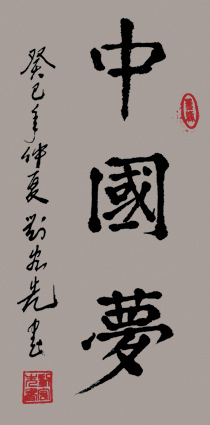 中國夢
癸巳年仲夏劉宏先書